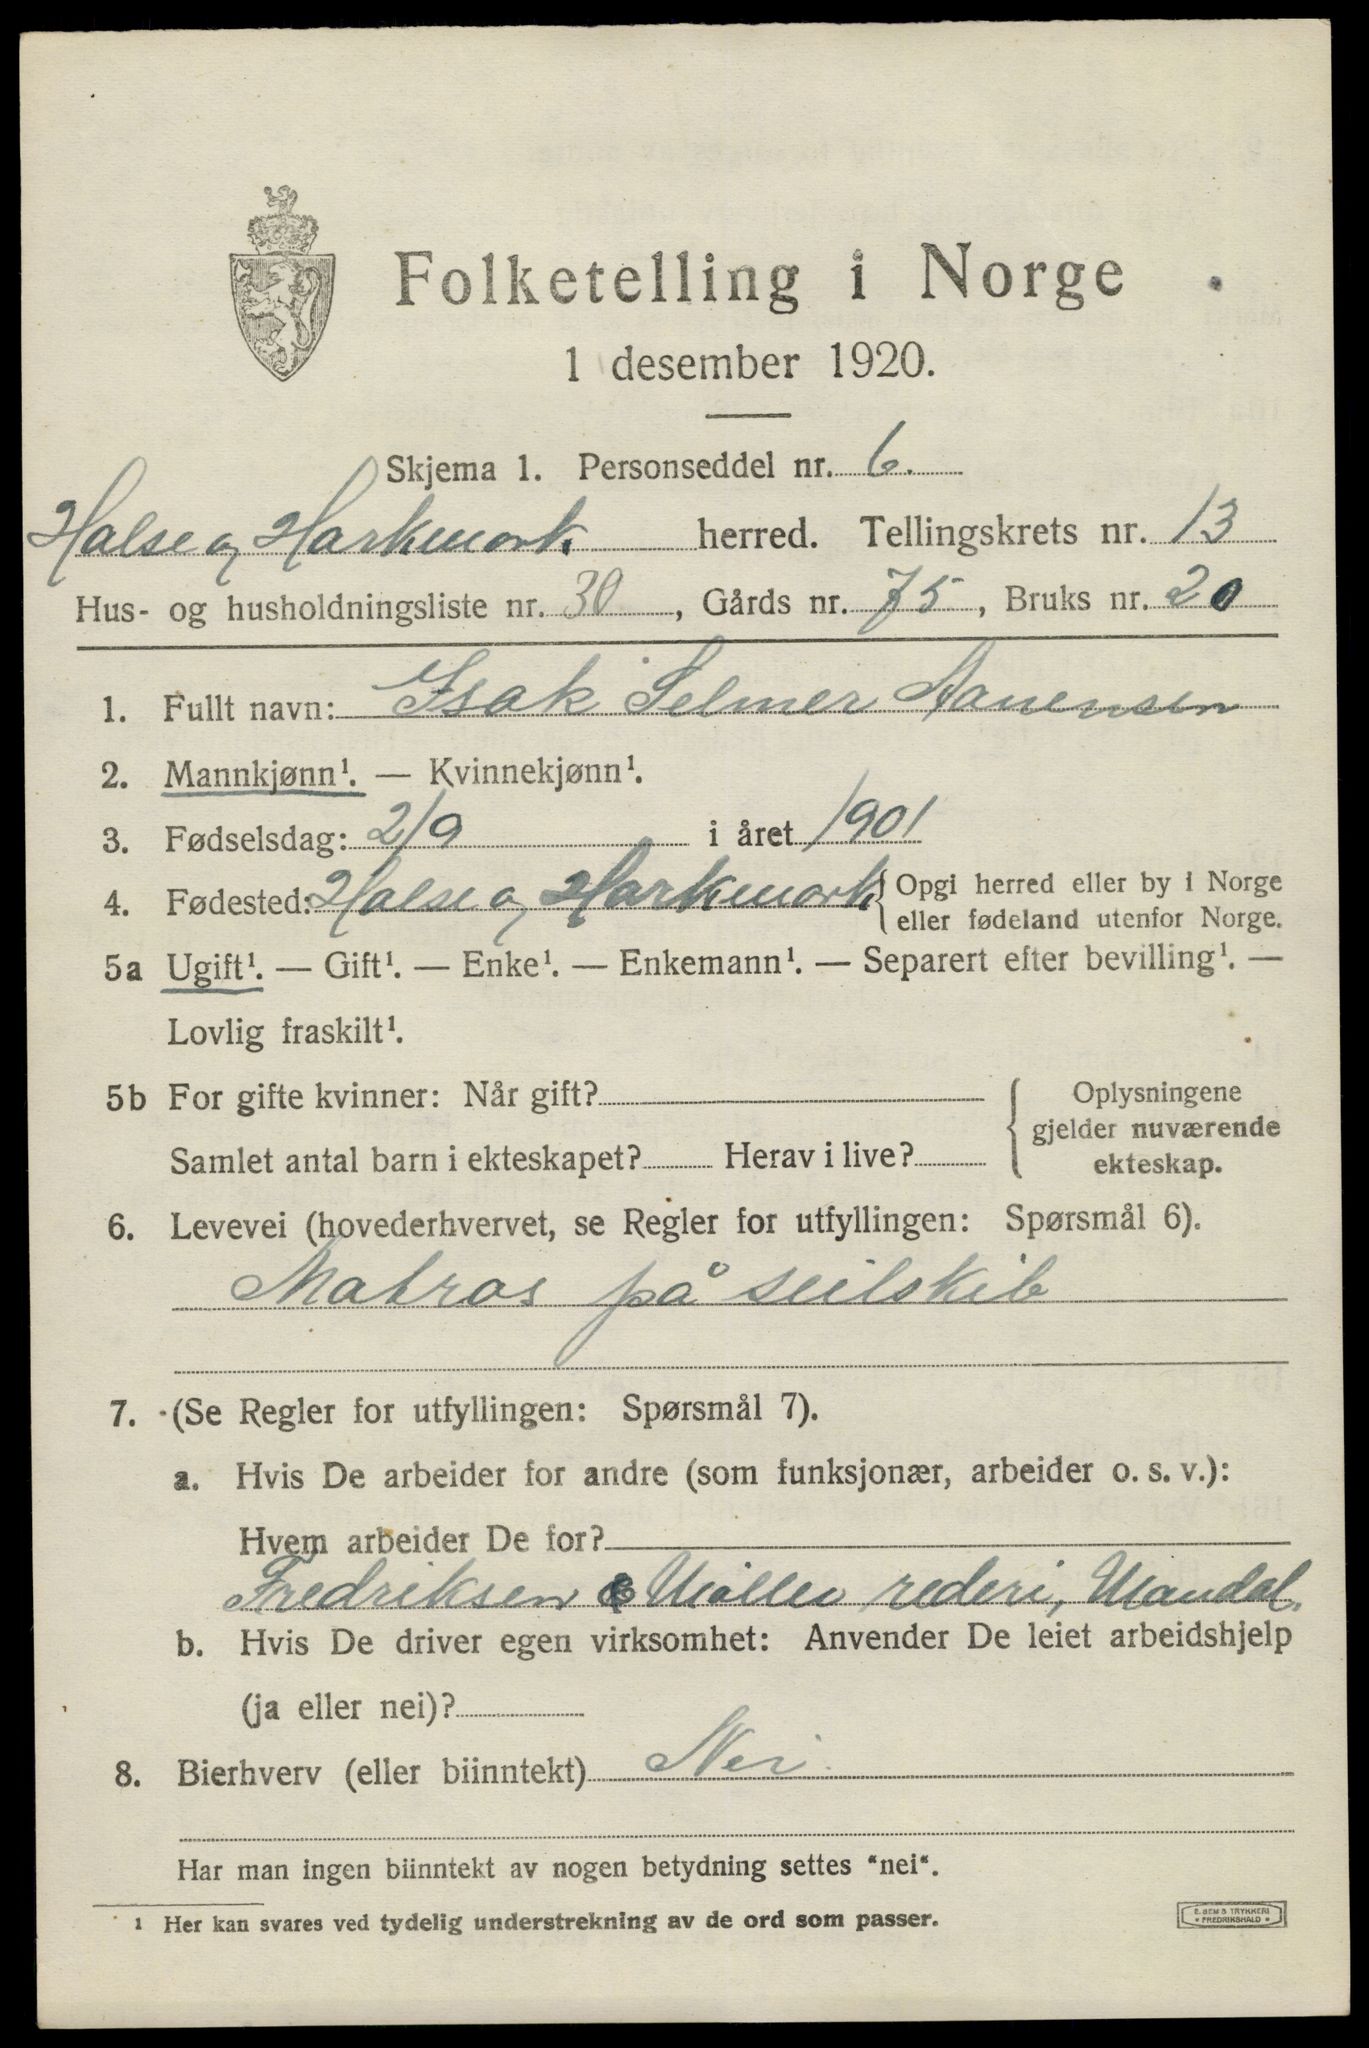 Folketelling i Norge
1 desember 1920.
Skjema 1. Personseddel nr. 6.
Halse og Harkmark herred. Tellingskrets nr. 13
Hus- og husholdningsliste nr. 30, Gårds nr. 75, Bruks nr. 20
1. Fullt navn: Isak Selmer Aanensen
2. Mannkjønn¹. — Kvinnekjønn¹.
3. Fødselsdag: 2/9 i året 1901
4. Fødested: Halse og Harkmark { Opgi herred eller by i Norge
eller fødeland utenfor Norge.
5a Ugift¹. — Gift¹. — Enke¹. — Enkemann¹. — Separert efter bevilling¹. —
Lovlig fraskilt¹.
5b For gifte kvinner: Når gift?
Samlet antal barn i ekteskapet? Herav i live?
{ Oplysningene
gjelder nuværende
ekteskap.
6. Levevei (hovederhvervet, se Regler for utfyllingen: Spørsmål 6).
Matros på seilskib
7. (Se Regler for utfyllingen: Spørsmål 7).
a. Hvis De arbeider for andre (som funksjonær, arbeider o. s. v.):
Hvem arbeider De for?
Fredriksen & Møller rederi, Mandal.
b. Hvis De driver egen virksomhet: Anvender De leiet arbeidshjelp
(ja eller nei)?
8. Bierhverv (eller biinntekt) Nei.
Har man ingen biinntekt av nogen betydning settes "nei".
¹ Her kan svares ved tydelig understrekning av de ord som passer.
E. SEM'S TRYKKERI
* FREDRIKSHALD *